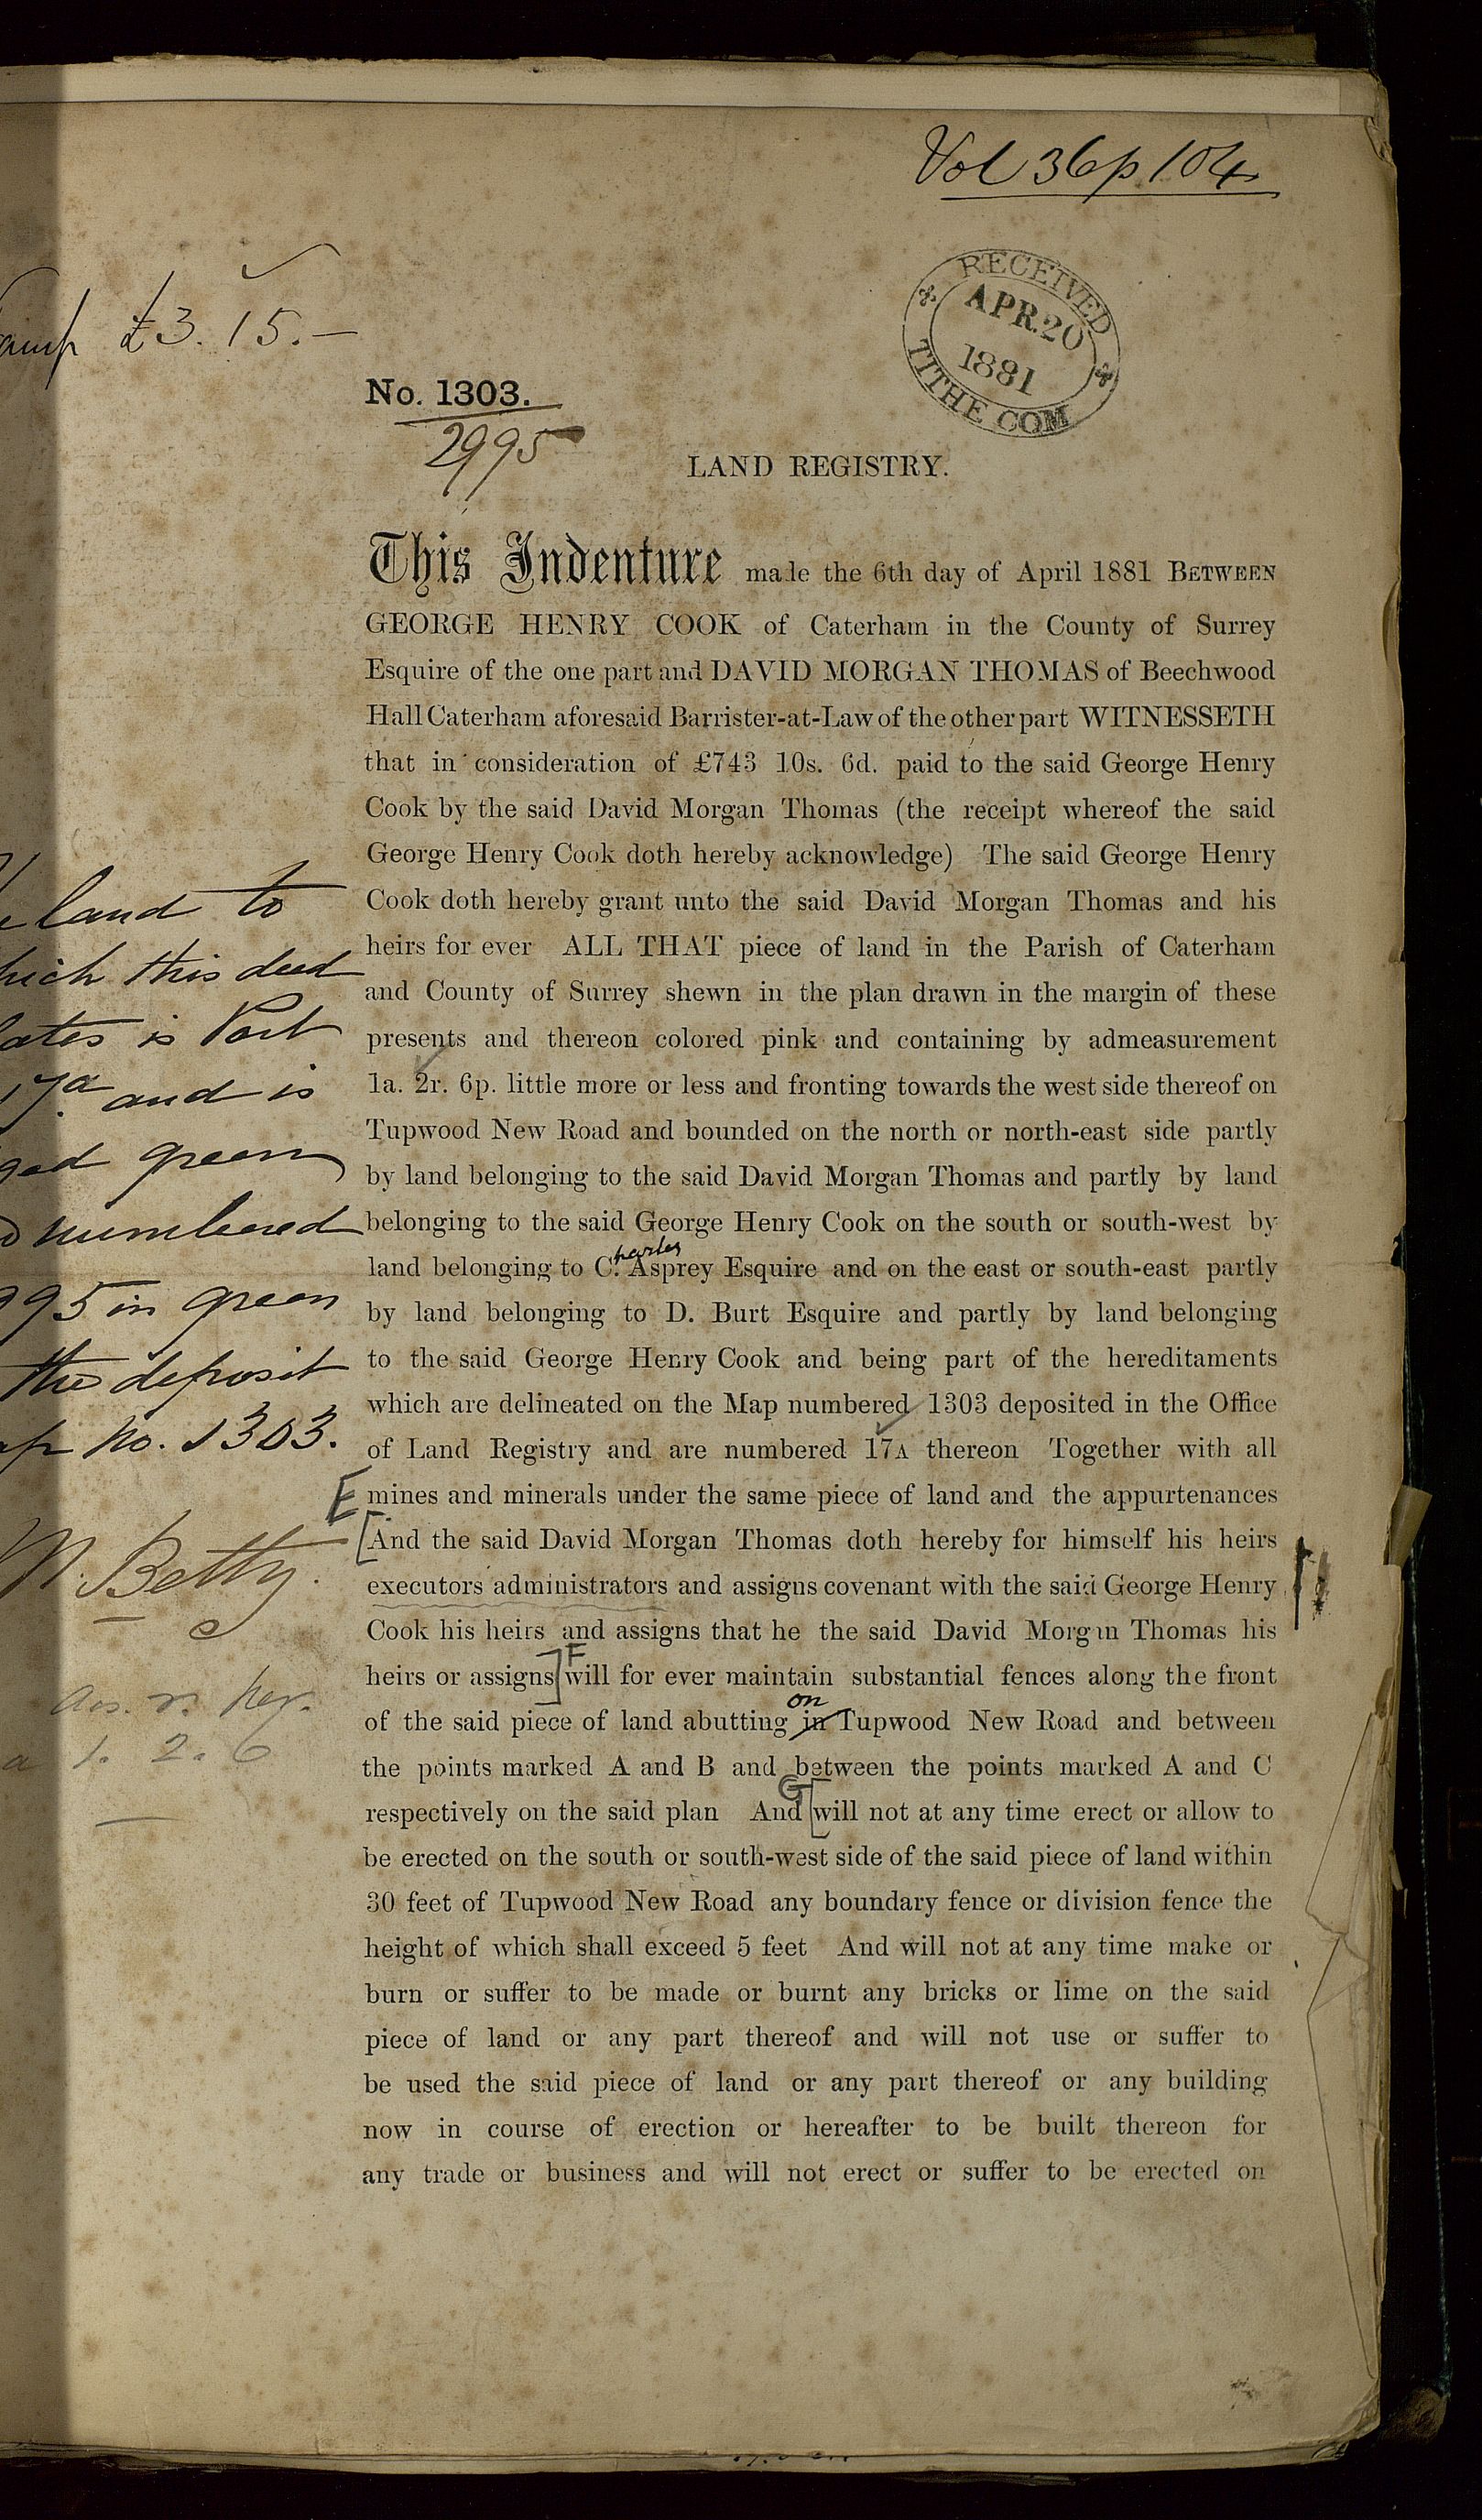 Vol 36 p 104
RECEIVED
APR. 20
1881
TITHE COM
£3. 15. —
No. 1303.
2995
LAND REGISTRY.
This Indenture made the 6th day of April 1881 BETWEEN
GEORGE HENRY COOK of Caterham in the County of Surrey
Esquire of the one part and DAVID MORGAN THOMAS of Beechwood
Hall Caterham aforesaid Barrister-at-Law of the other part WITNESSETH
that in consideration of £743 10s. 6d. paid to the said George Henry
Cook by the said David Morgan Thomas (the receipt whereof the said
George Henry Cook doth hereby acknowledge) The said George Henry
Cook doth hereby grant unto the said David Morgan Thomas and his
heirs for ever ALL THAT piece of land in the Parish of Caterham
and County of Surrey shewn in the plan drawn in the margin of these
presents and thereon colored pink and containing by admeasurement
1a. 2r. 6p. little more or less and fronting towards the west side thereof on
Tupwood New Road and bounded on the north or north-east side partly
by land belonging to the said David Morgan Thomas and partly by land
belonging to the said George Henry Cook on the south or south-west by
land belonging to C.harles Asprey Esquire and on the east or south-east partly
by land belonging to D. Burt Esquire and partly by land belonging
to the said George Henry Cook and being part of the hereditaments
which are delineated on the Map numbered 1303 deposited in the Office
of Land Registry and are numbered 17A thereon Together with all
E mines and minerals under the same piece of land and the appurtenances
[And the said David Morgan Thomas doth hereby for himself his heirs
executors administrators and assigns covenant with the said George Henry
Cook his heirs and assigns that he the said David Morgan Thomas his
heirs or assigns] F will for ever maintain substantial fences along the front
of the said piece of land abutting in on Tupwood New Road and between
the points marked A and B and between the points marked A and C
respectively on the said plan And G [will not at any time erect or allow to
be erected on the south or south-west side of the said piece of land within
30 feet of Tupwood New Road any boundary fence or division fence the
height of which shall exceed 5 feet And will not at any time make or
burn or suffer to be made or burnt any bricks or lime on the said
piece of land or any part thereof and will not use or suffer to
be used the said piece of land or any part thereof or any building
now in course of erection or hereafter to be built thereon for
any trade or business and will not erect or suffer to be erected on
land to
hich this deed
ates is Part
17a and is
ged green
numbered
995 in green
the deposit
ap No. 1303.
M. Betty.
a 1. 2. 6